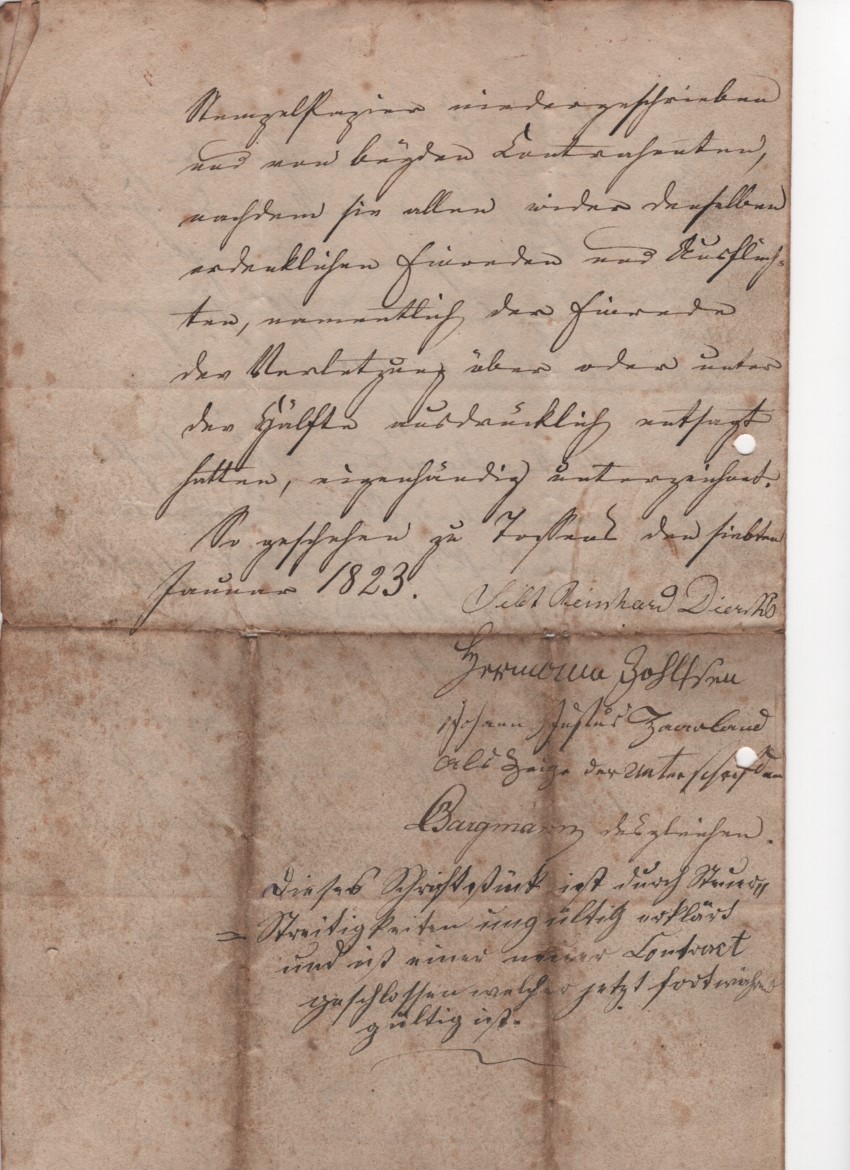 Stempelpapier niedergeschrieben
und von beyden Contrahenten,
nachdem sie allen wider denselben
erdenklichen Einreden und Ausflüch-
ten, namentlich der Einrede
der Verletzung über oder unter
der Hälfte ausdrücklich entsagt
hatten, eigenhändig unterzeichnet.
So geschehen zu Tossens den siebten
Januar 1823.
Sibt Reinhard Diercks
Hermann
Johann Justus
als Zeige der Unterschriften
Bargmann desgleichen.
Dieses Schriftstück ist durch Steuer=
=Streitigkeiten ungültig erklärt
und ist einer neuer Contract
geschlossen welcher jetzt fortwährend
gültig ist.